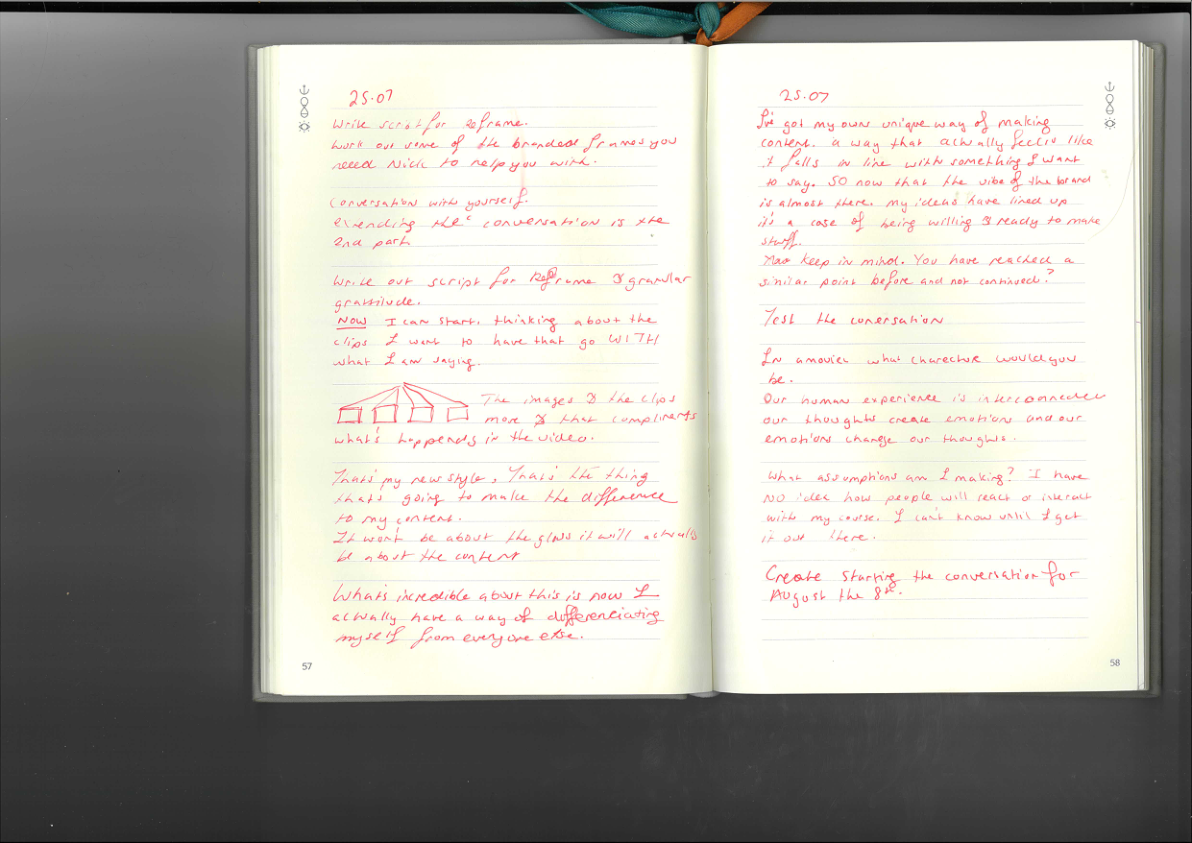 25.07
Write script for Reframe.
Work out some of the branded frames you
need Nick to help you with.
Conversation with yourself.
extending the conversation is the
2nd part
Write out script for Reframe & granular
gratitude.
Now I can start thinking about the
clips I want to have that go WITH
what I am saying.
The images & the clips
more & that compliments
what's happends in the video.
That's my new style. That's the thing
thats going to make the difference
to my content.
It won't be about the glass it will actually
be about the content
Whats incredible about this is now I
actually have a way of differenciating
myself from everyone else.
57
25.07
I've got my own unique way of making
content. a way that actually feels like
it falls in line with something I want
to say. SO now that the vibe of the brand
is almost there. my ideas have lined up
it's a case of being willing & ready to make
stuff.
keep in mind. You have reached a
similar point before and not continued?
Test the conersation
In a movie what charecture would you
be.
Our human experience is interconnected
our thoughts create emotions and our
emotions change our thoughts.
What assumptions am I making? I have
NO idea how people will react or interact
with my course. I can't know until I get
it out there.
Create starting the conversation for
August the 8th.
58